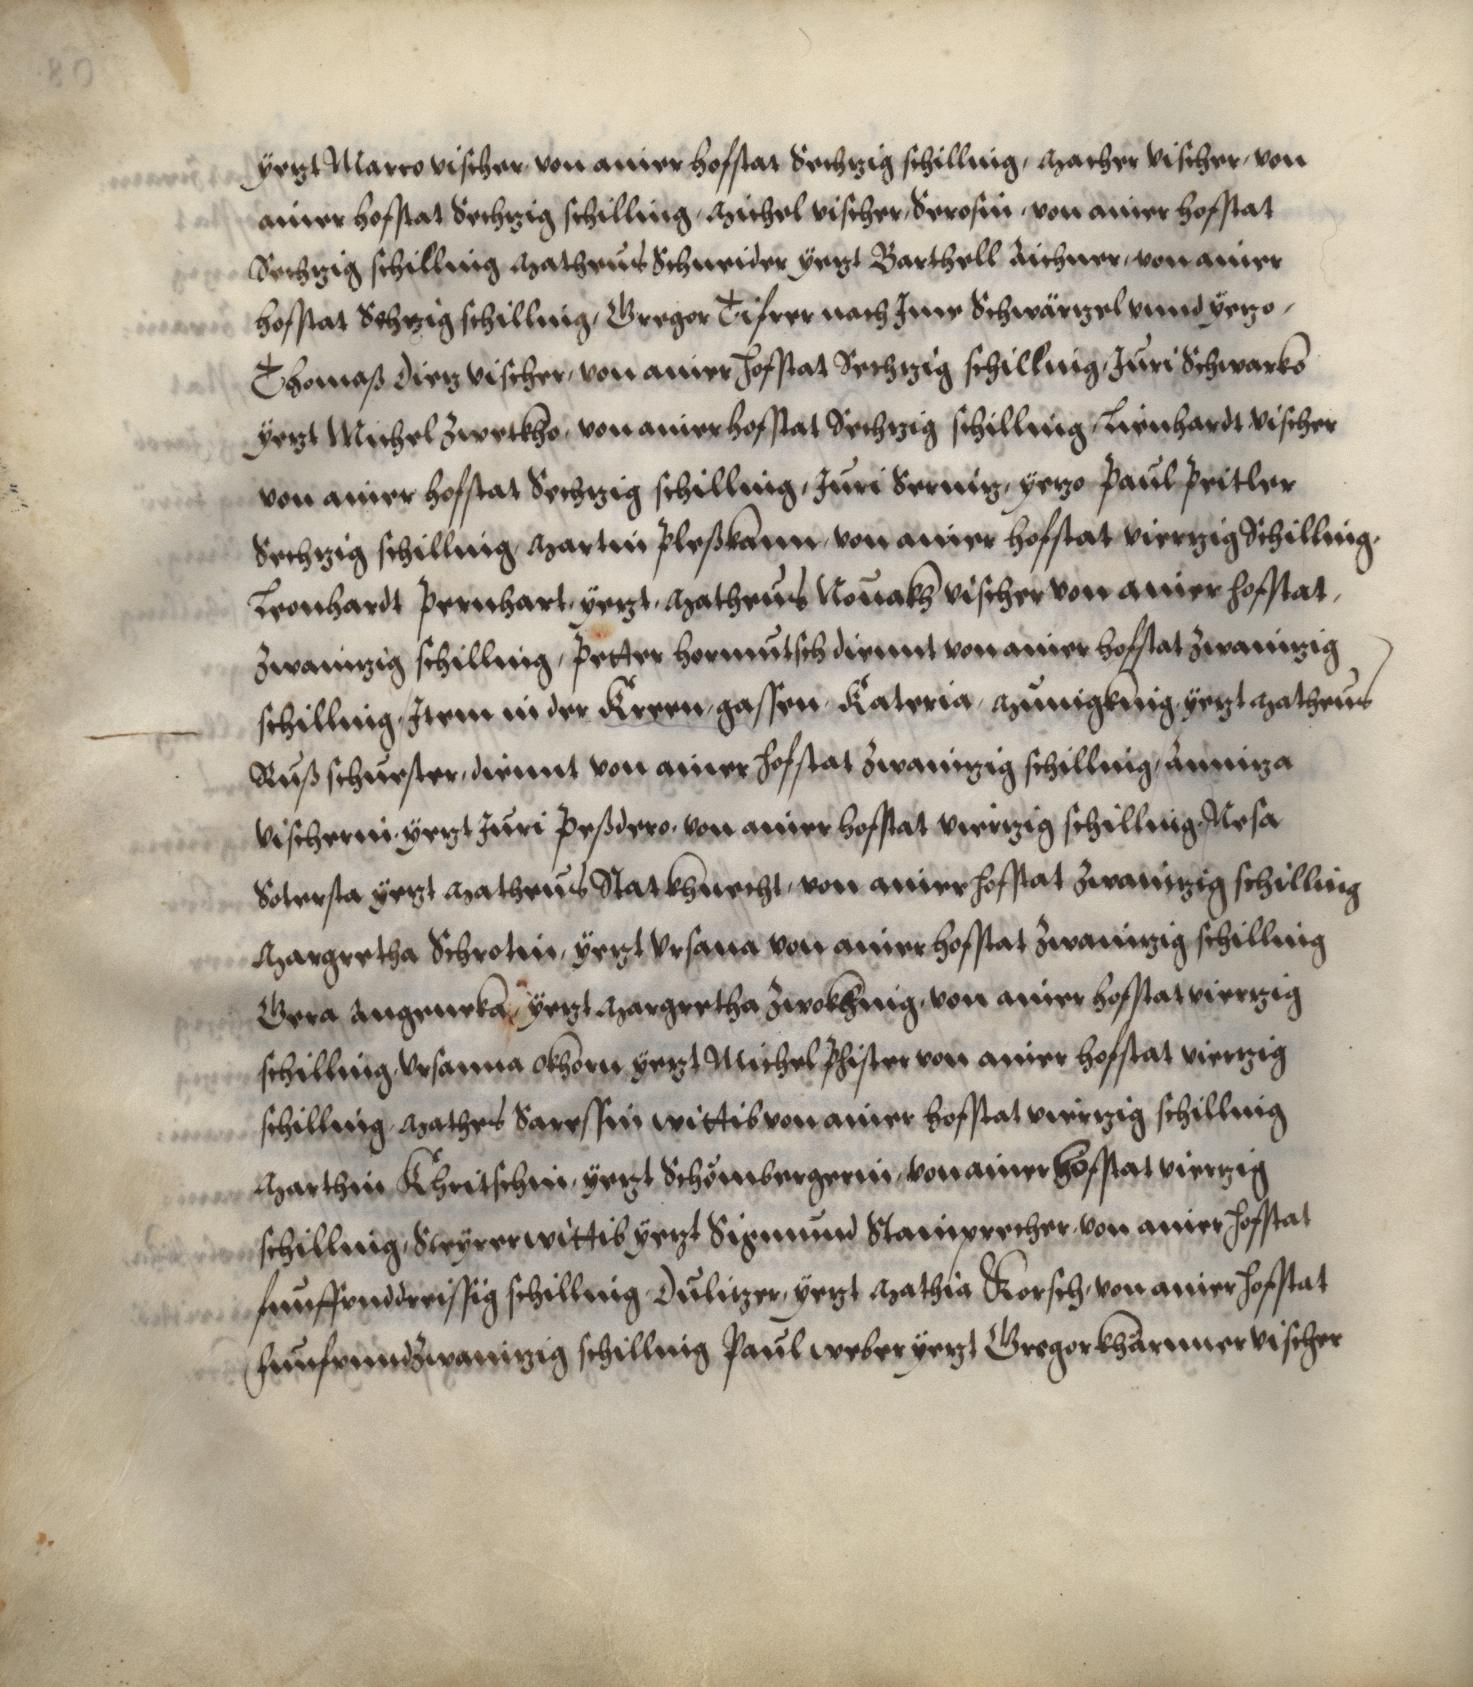 yetzt Marco vischer, von ainer hofstat Sechtzig schilling, Macher vischer, von
ainer hofstat Sechtzig schilling, Michel vischer, Serosin, von ainer hofstat
Sechtzig schilling Matheus Schneider yetzt Barthell Aichner, von ainer
hofstat Sehtzig schilling, Gregor Tifrer nach Ime Schwärtzel vnnd yetzo,
Thomaß Dietz vischer, von ainer hofstat Sechtzig schilling, Juri Schwarko
yetzt Michel Zwetkho, von ainer hofstat Sechtzig schilling, Lienhardt vischer
von ainer hofstat Sechtzig schilling, Juri Sernitz, yetzo Paul Peitler
Sechtzig schilling, Martin Pleßkann, von ainer hofstat viertzig Schilling,
Leonhardt Pernhart, yetzt, Matheus Nouakh vischer von ainer hofstat,
Zwaintzig schilling, Petter Hormutsch diennt von ainer hofstat Zwaintzig
schilling, Item in der Kreen, gassen, Kateria, Munigknig, yetzt Matheus
Ruß schuester, diennt von ainer hofstat Zwaintzig schilling, Annitza
vischerin, yetzt Juri Peßdero, von ainer hofstat viertzig schilling, Nesa
Sotersta yetzt Matheus Statkhnecht, von ainer hofstat Zwaintzig schilling
Margretha Schrotin, yetzt Vrsana von ainer hofstat Zwaintzig schilling
Gera Angeneka, yetzt Margretha Zwokhnig, von ainer hofstat viertzig
schilling, Vrsanna Okhorn yetzt Michel Phister von ainer hofstat viertzig
schilling, Mathes Saressin wittib von ainer hofstat viertzig schilling
Marthin Khritschin, yetzt Schömbergerin, von ainer hofstat viertzig
schilling, Steyrer wittib yetzt Sigmund Stainprecher, von ainer hofstat
funffvnddreissig schilling, Dulitzer, yetzt Mathia Korsch, von ainer hofstat
funfvnndzwaintzig schilling Paul weber yetzt Gregor kharnner vischer